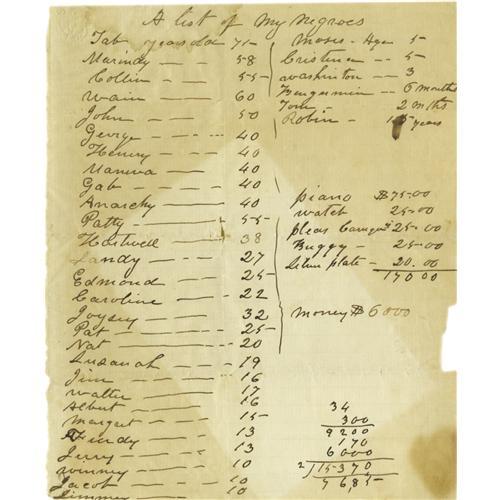 A list of My Negroes
Tab years old 75
Marindy — 58
Collin — 55
Wain — 60
John — 50
George — 40
Henry — 40
40
Gab — 40
Anarchy — 40
Patty — 55
Hartwell — 38
Landy — 27
Edmond — 25
Caroline — 22
Joysey — 32
Pat — 25
Nat — 20
Susanah — 19
Jim — 16
Walter — 17
Albert — 16
Margaret — 15
13
Jerry — 13
Winney — 10
Jacob — 10
Jimmey 10
Moses - Age 5
Cristina -- 5
Washinton -- 3
Bengermin -- 6 months
Tom 2 mths
Robin - years
piano $75.00
watch 25.00
pleas Carriage 25.00
Buggy - 25.00
Silver plate - 20.00
170 00
money $ 6000
34
300
9200
170
6000
2)15370
7685